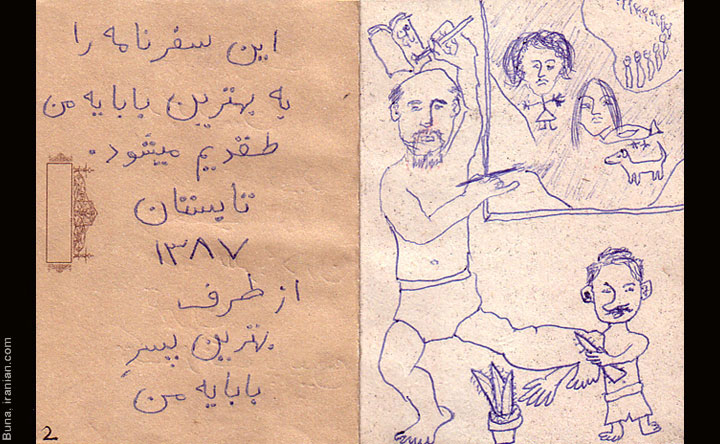 این سفرنامه را
به بهترین بابایه من
طقدیم میشود.
تابستان
۱۳۸۷
از طرف
بهترین پسرِ
بابایه من
2
Buna, iranian.com